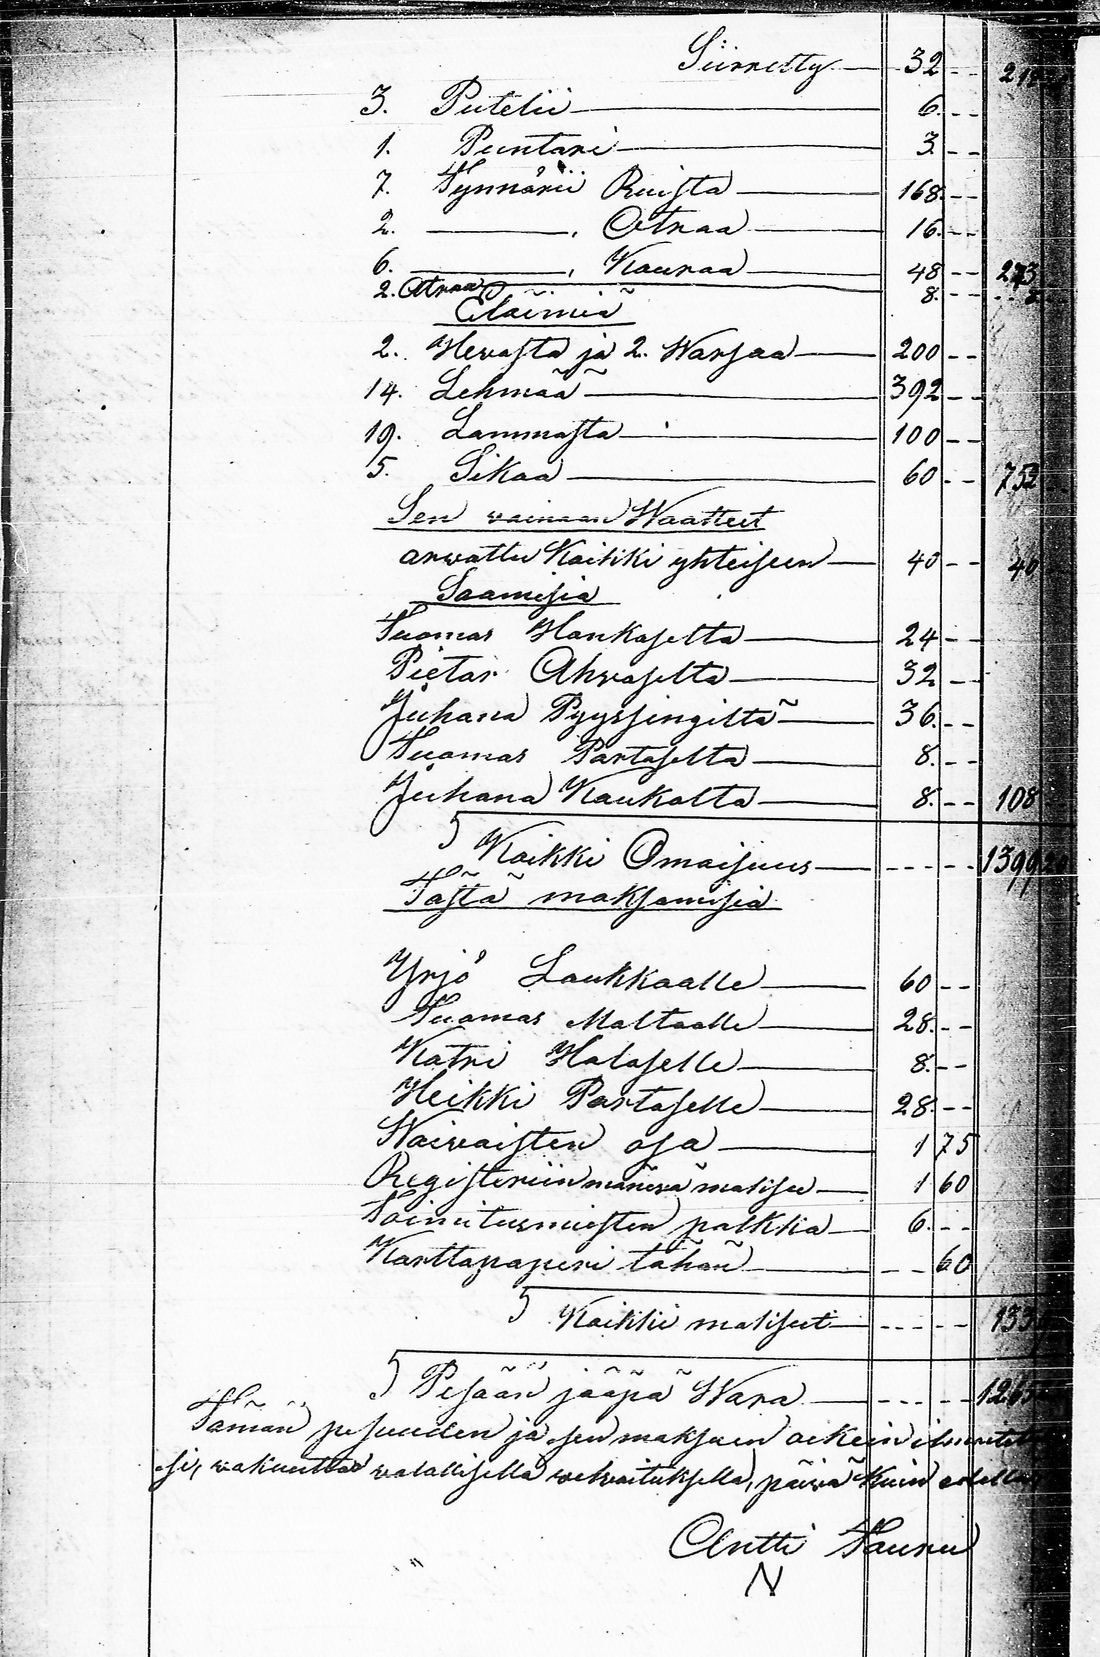 Siirretty 32
3. Putelii 6.
1. Puntari 3
7. Tynnärii Ruista 168.
2. " Otraa 16.
6. " Kauraa 48 273
2. Otraa 8. 8
Eläimiä
2. Hevosta ja 2. Warsaa 200
14. Lehmää 392
19. Lammasta 100
5. Sikaa 60 752
Sen vainaan Waatteet
arwattu Kaikki yhteiseen 40 40
Saamisia
Tuomas Hankaselta 24
Pietar Ahvaselta 32
Juhana Pyyssingiltä 36.
Tuomas Partaselta 8.
Juhana Kaukolta 8. 108
Kaikki Omaisuus 1399
Tästä maksamisia
Yrjö Laukkaalle 60
Tuomas Maltaalle 28.
Katri Halaselle 8.
Heikki Partaselle 28.
Waivaisten osa 1 75
Registeriin maksu 1 60
Toimitusmiesten palkka 6.
Karttapaperi tähän 60
Kaikki maksut
Pesään jääpä Wara
Tämän pesuuden ja sen maksuen oikein
si, vakuuttaa valallisella velvoituksella, päivä Kuin edellä
Antti Tauru
N